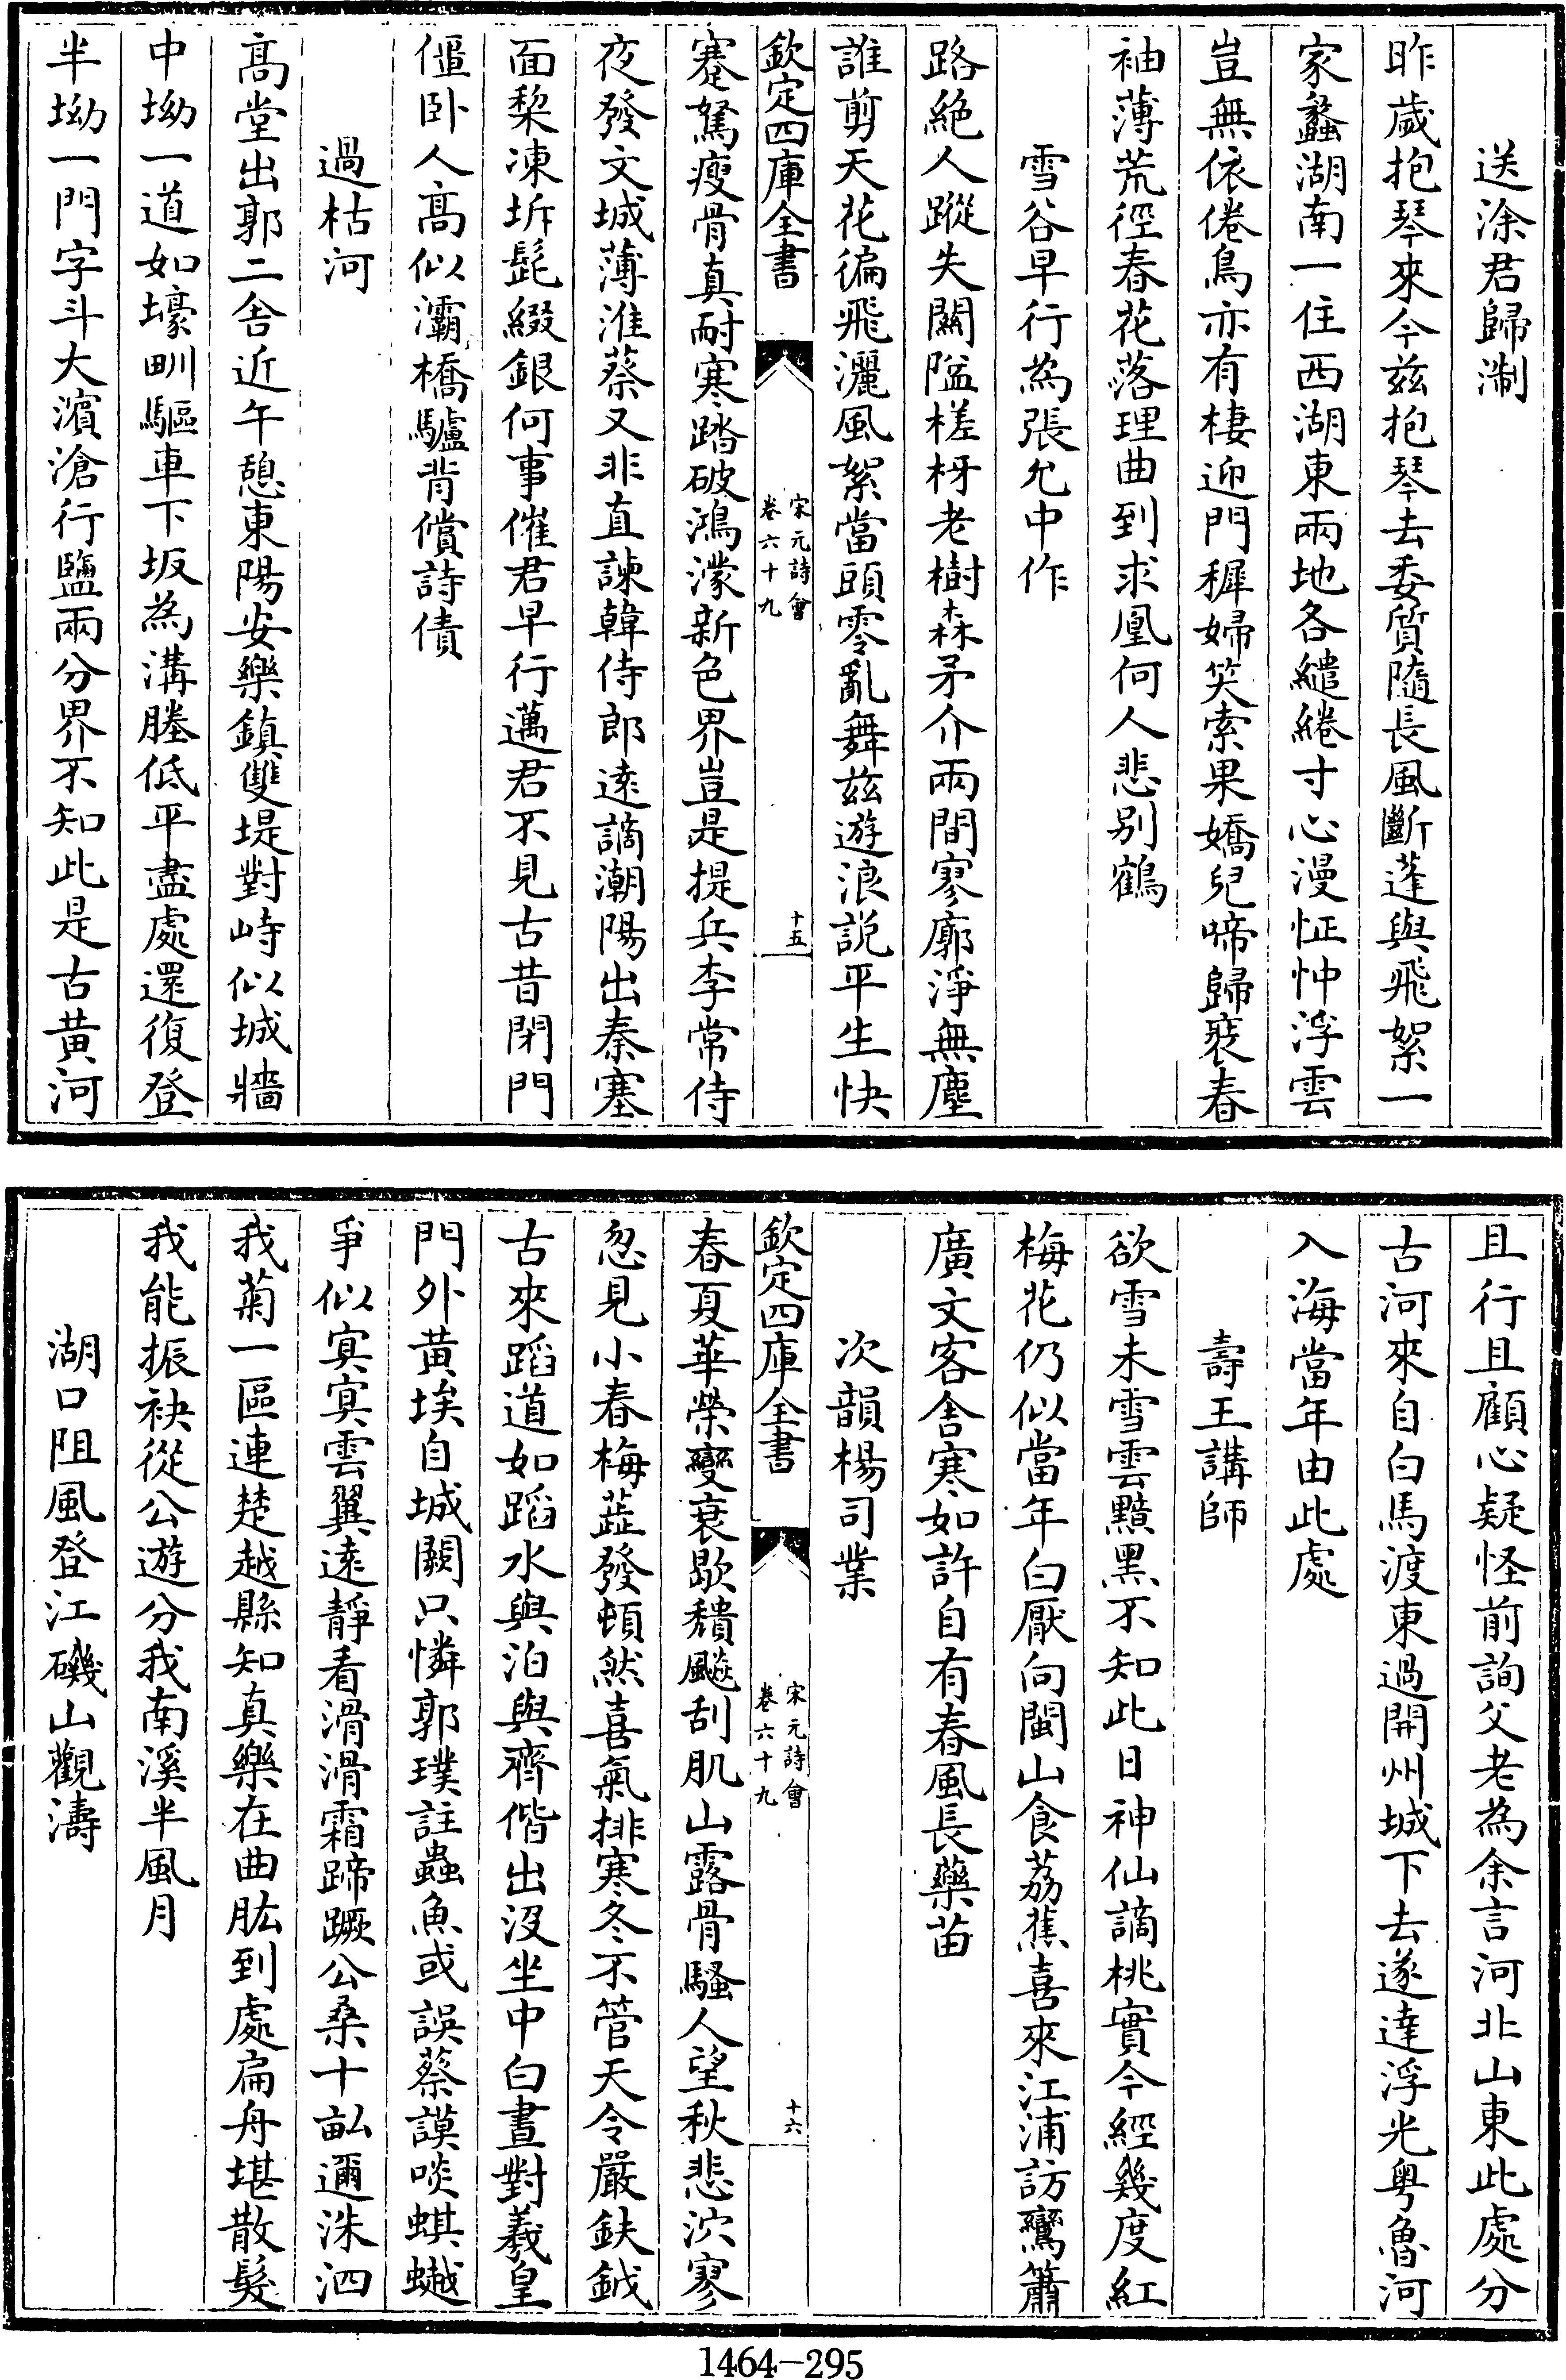 送涂君歸淛
昨歲抱琴來今兹抱琴去委質隨長風斷蓬與飛絮一
家蠡湖南一住西湖東兩地各繾綣寸心漫怔忡浮雲
豈無依倦鳥亦有棲迎門穉婦笑索果嬌兒啼歸裵春
袖薄荒徑春花落理曲到求凰何人悲别鶴
雪谷早行為張允中作
路絶人蹤失闗隘槎枒老樹森矛介兩間寥廓淨無塵
誰剪天花徧飛灑風絮當頭零亂舞兹遊浪説平生快
欽定四庫全書
宋元詩會
卷六十九
十五
蹇駑瘦骨真耐寒踏破鴻濛新色界豈是提兵李常侍
夜發文城薄淮蔡又非直諫韓侍郎逺謫潮陽出秦塞
面棃凍坼髭綴銀何事催君早行邁君不見古昔閉門
僵卧人髙似灞橋驢背償詩債
過枯河
髙堂出郭二舍近午憩東陽安樂鎮雙堤對峙似城牆
中坳一道如壕甽驅車下坂為溝塍低平盡處還復登
半坳一門字斗大濱滄行鹽兩分界不知此是古黄河
且行且顧心疑怪前詢父老為余言河北山東此處分
古河來自白馬渡東過開州城下去遂達浮光粤魯河
入海當年由此處
壽王講師
欲雪未雪雲黯黑不知此日神仙謫桃實今經幾度紅
梅花仍似當年白厭向閩山食荔蕉喜來江浦訪鸞簫
廣文客舍寒如許自有春風長藥苗
次韻楊司業
欽定四庫全書
宋元詩會
卷六十九
十六
春夏華榮變衰歇穨飈刮肌山露骨騷人望秋悲泬寥
忽見小春梅蘂發頓然喜氣排寒冬不管天令嚴鈇鉞
古來蹈道如蹈水與汩與齊偕出没坐中白晝對羲皇
門外黄埃自城闕只憐郭璞註蟲魚或誤蔡謨啖蜞蠘
爭似㝠㝠雲翼逺靜看滑滑霜蹄蹶公桑十畝邇洙泗
我菊一區連楚越縣知真樂在曲肱到處扁舟堪散髮
我能振袂從公遊分我南溪半風月
湖口阻風登江磯山觀濤
1464-295